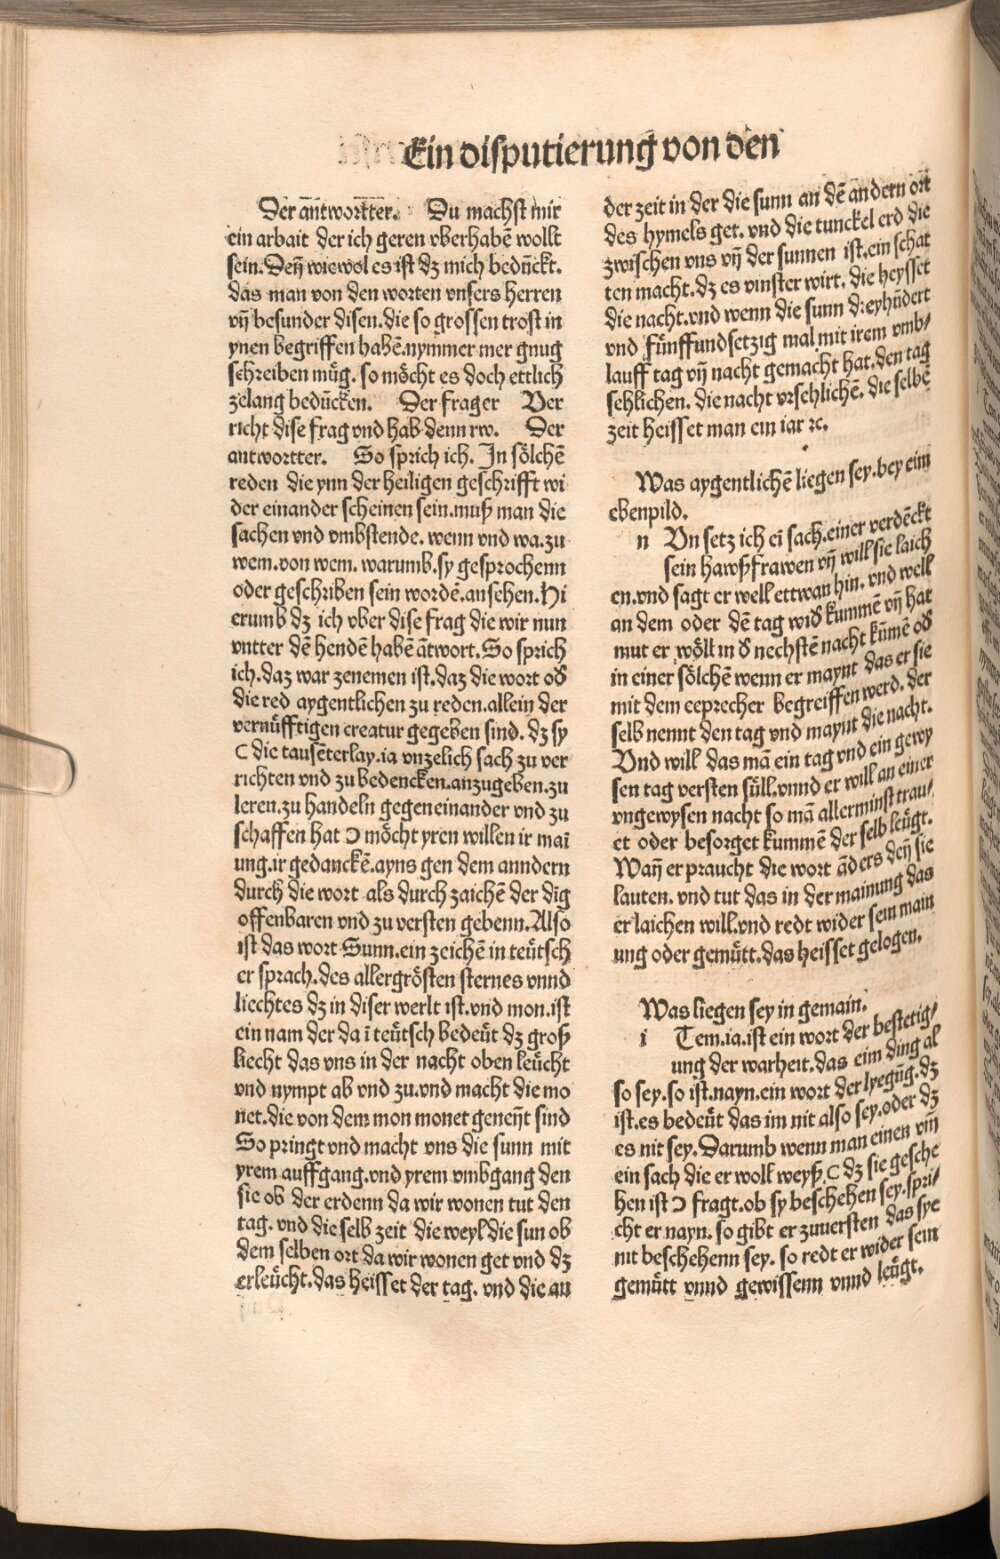 Ein disputierung von den
Der an̄twortter. Du machst mir
ein arbait der ich geren vberhabē wollt
sein. Den̄ wiewol es ist dz mich bedūckt.
das man von den worten vnsers herren
vn̄ besunder disen. die so grossen trost in
ynen begriffen habē. nymmer mer gnug
schreiben müg. so möcht es doch ettlich
zelang bedūcken. Der frager Ver
richt dise frag vnd hab denn rw. Der
antwortter. So sprich ich. In sölchē
reden die ynn der heiligen geschrifft wi
der einander scheinen sein. muß man die
sachen vnd vmbstende. wenn vnd wa. zu
wem. von wem. warumb. sy gesprochenn
oder geschriben sein wordē. ansehen. Hi
erumb dz ich vber dise frag die wir nun
vntter dē hendē habē ātwort. So sprich
ich. daz war zenemen ist. daz die wort oď
die red aygentlichen zu reden. allein der
vernüfftigen creatur gegeben sind. dz sy
C die tausēterlay. ia vnzelich sach zu ver
richten vnd zu bedencken. anzugeben. zu
leren. zu handeln gegeneinander vnd zu
schaffen hat Ɔ möcht yren willen ir mai
ung. ir gedanckē. ayns gen dem anndern
durch die wort als durch zaichē der dīg
offenbaren vnd zu versten gebenn. Also
ist das wort Sunn. ein zeichē in teütsch
er sprach. des allergrösten sternes vnnd
liechtes dz in diser werlt ist. vnd mon. ist
ein nam der da ī teütsch bedeüt dz groß
liecht das vns in der nacht oben leücht
vnd nympt ab vnd zu. vnd macht die mo
net. die von dem mon monet genen̄t sind
So pringt vnd macht vns die sunn mit
yrem auffgang. vnd yrem vmbgang den
sie ob der erdenn da wir wonen tut den
tag. vnd die selb zeit die weyl die sun ob
dem selben ort da wir wonen get vnd dz
erleücht. das heisset der tag. vnd die an
der zeit in der die sunn an dē andern ort
des hymels get. vnd die tunckel erd die
zwischen vns vn̄ der sunnen ist. ein schat
ten macht. dz es vinster wirt. die heysset
die nacht. vnd wenn die sunn dreyhūdert
vnd fünffundsetzig mal mit irem vmb/
lauff tag vn̄ nacht gemacht hat. den tag
sehlichen. die nacht vrsehlichē. die selbē
zeit heisset man ein iar ꝛc.
Was aygentlichē liegen sey. bey eim
ebenpild.
n Vn setz ich eī sach. einer verdēckt
sein hawßfrawen vn̄ will sie laich
en. vnd sagt er well ettwan hin. vnd well
an dem oder dē tag wiď kummē vn̄ hat
mut er wöll in ď nechstē nacht kūmē oď
in einer sölchē wenn er maynt das er sie
mit dem eeprecher begreiffen werd. der
selb nennt den tag vnd maynt die nacht.
Vnd will das mā ein tag vnd ein gewy
sen tag versten süll. vnnd er will an einer
vngewysen nacht so mā allerminst trau/
et oder besorget kummē der selb leügt.
Wan̄ er praucht die wort āders den̄ sie
lauten. vnd tut das in der mainung das
er laichen will. vnd redt wider sein main
ung oder gemütt. das heisset gelogen.
Was liegen sey in gemain.
i Tem. ia. ist ein wort der bestetig/
ung der warheit. das eim ding al
so sey. so ist. nayn. ein wort der lyegūg. dz
ist. es bedeüt das im nit also sey. oder dz
es nit sey. Darumb wenn man einen vm̄
ein sach die er woll weyß. C dz sie gesche
hen ist Ɔ fragt. ob sy beschehen sey. spri/
cht er nayn. so gibt er zuuersten das sye
nit beschehenn sey. so redt er wider sein
gemütt vnnd gewissenn vnnd leügt.